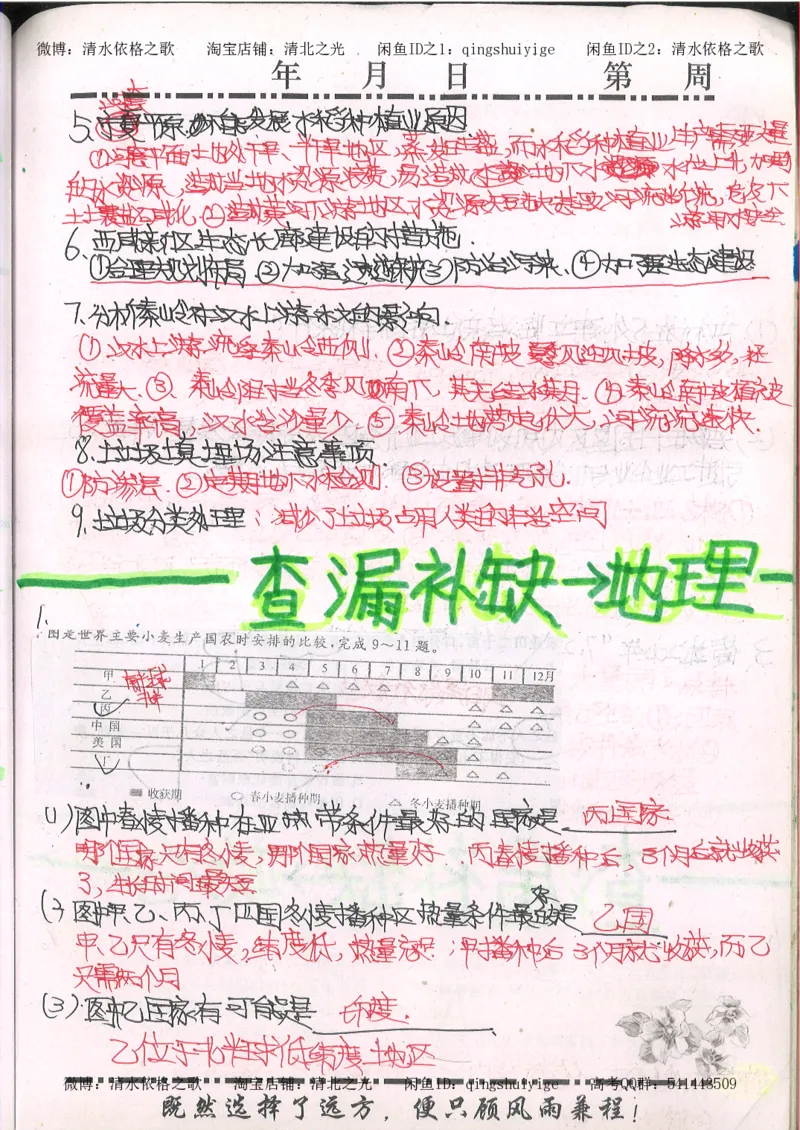 微博：清水依格之歌 淘宝店铺：清北之光 闲鱼ID之1：qingshuiyige 闲鱼ID之2：清水依格之歌
年 月 日 第 周
5、宁夏平原 发展水稻种植业原因
①宁夏平原地处干旱、半干旱地区，蒸发旺盛，而水稻种植业生产需要大量
的水资源，造成当地水资源浪费，易造成 地下水 水位上升，加剧
土壤盐碱化，②造成黄河下游地区水资源短缺甚至河流断流，危及下
游用水安全
6、西咸新区生态长廊建设的措施．
①合理规划布局 ② ③防治污染、④加强生态建设
7、分析秦岭对汉水上游水文的影响．
①汉水上游流经秦岭西侧．②秦岭南坡 夏季风迎风坡，降水多，径
流量大．③、秦岭阻挡冬季风南下，其无结冰期．④秦岭南坡植被
覆盖率高，汉水含沙量少、⑤秦岭地势起伏大，河流流速快．
8、垃圾填埋场注意事项
①防渗层．②定期地下水检测．③设置排气孔．
9、垃圾分类处理：减少了垃圾占用人类的生活空间
查漏补缺→地理
1．
图是世界主要小麦生产国农时安排的比较，完成9～11题。
1 2 3 4 5 6 7 8 9 10 11 12月
甲 南半球
乙
丙
中国
美国
丁
收获期 春小麦播种期 冬小麦播种期
(1)图中春小麦播种在 热量条件最好的国家是 丙国家
哪个国家只有冬小麦，哪个国家热量好．丙春小麦播种后，3个月后就收获
了，生长时间最短
(2)图中甲、乙、丙、丁四国冬小麦播种区热量条件最好的是 乙国
甲、乙只有冬小麦，纬度低，热量充足；甲播种后3个月就收获，而乙
只需两个月
(3)图中乙国家有可能是 印度．
乙位于北半球低纬度地区
微博：清水依格之歌 淘宝店铺：清北之光 闲鱼ID：qingshuiyige 高考QQ群：541443509
既然选择了远方，便只顾风雨兼程！